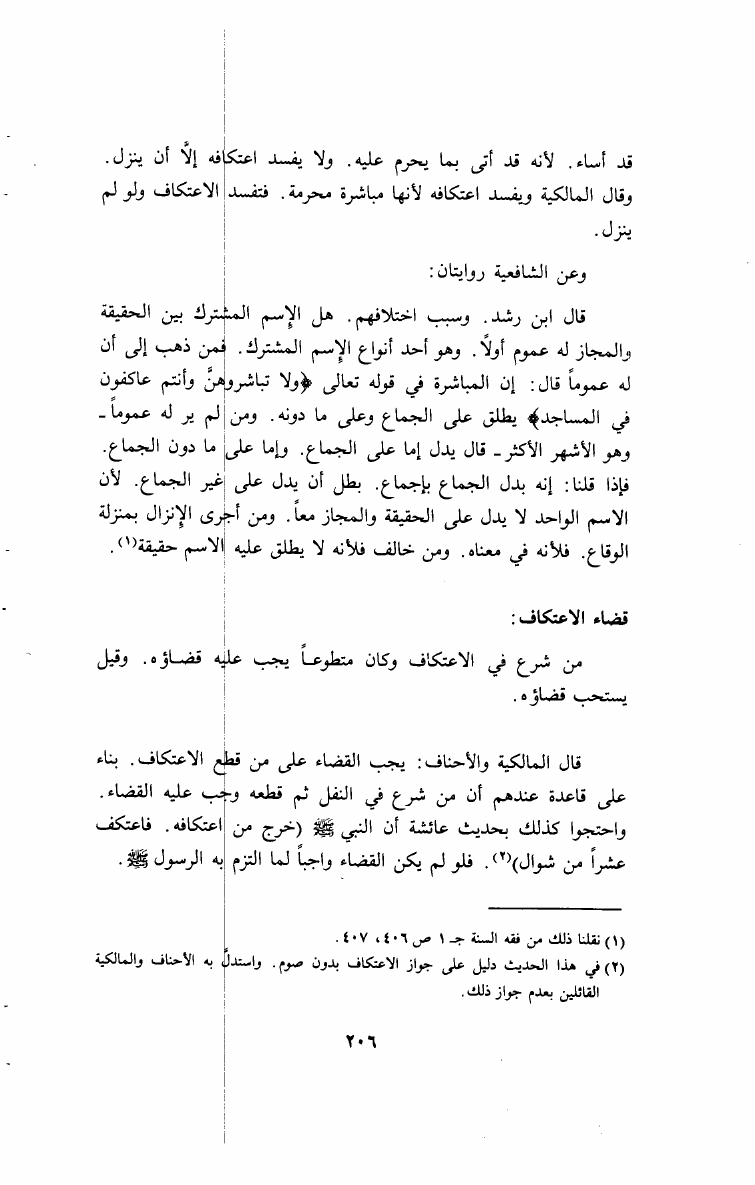 قد أساء. لأنه قد أتى بما يحرم عليه. ولا يفسد اعتكافه إلاَّ أن ينزل.
وقال المالكية ويفسد اعتكافه لأنها مباشرة محرمة. فتفسد الاعتكاف ولو لم
ينزل.
وعن الشافعية روايتان:
قال ابن رشد. وسبب اختلافهم. هل الإسم المشترك بين الحقيقة
والمجاز له عموم أولاً. وهو أحد أنواع الإسم المشترك. فمن ذهب إلى أن
له عموماً قال: إن المباشرة في قوله تعالى ﴿ولا تباشروهنَّ وأنتم عاكفون
في المساجد﴾ يطلق على الجماع وعلى ما دونه. ومن لم ير له عموماً ـ
وهو الأشهر الأكثر ـ قال يدل إما على الجماع. وإما على ما دون الجماع.
فإذا قلنا: إنه يدل الجماع بإجماع. بطل أن يدل على غير الجماع. لأن
الاسم الواحد لا يدل على الحقيقة والمجاز معاً. ومن أجرى الإنزال بمنزلة
الوقاع. فلأنه في معناه. ومن خالف فلأنه لا يطلق عليه الاسم حقيقة(١).
قضاء الاعتكاف:
من شرع في الاعتكاف وكان متطوعاً يجب عليه قضاؤه. وقيل
يستحب قضاؤه.
قال المالكية والأحناف: يجب القضاء على من قطع الاعتكاف. بناء
على قاعدة عندهم أن من شرع في النفل ثم قطعه وجب عليه القضاء.
واحتجوا كذلك بحديث عائشة أن النبي ﷺ (خرج من اعتكافه. فاعتكف
عشراً من شوال)(٢). فلو لم يكن القضاء واجباً لما التزم به الرسول ﷺ.
(١) نقلنا ذلك من فقه السنة جـ ١ ص ٤٠٦، ٤٠٧.
(٢) في هذا الحديث دليل على جواز الاعتكاف بدون صوم. واستدلَّ به الأحناف والمالكية
القائلين بعدم جواز ذلك.
٢٠٦